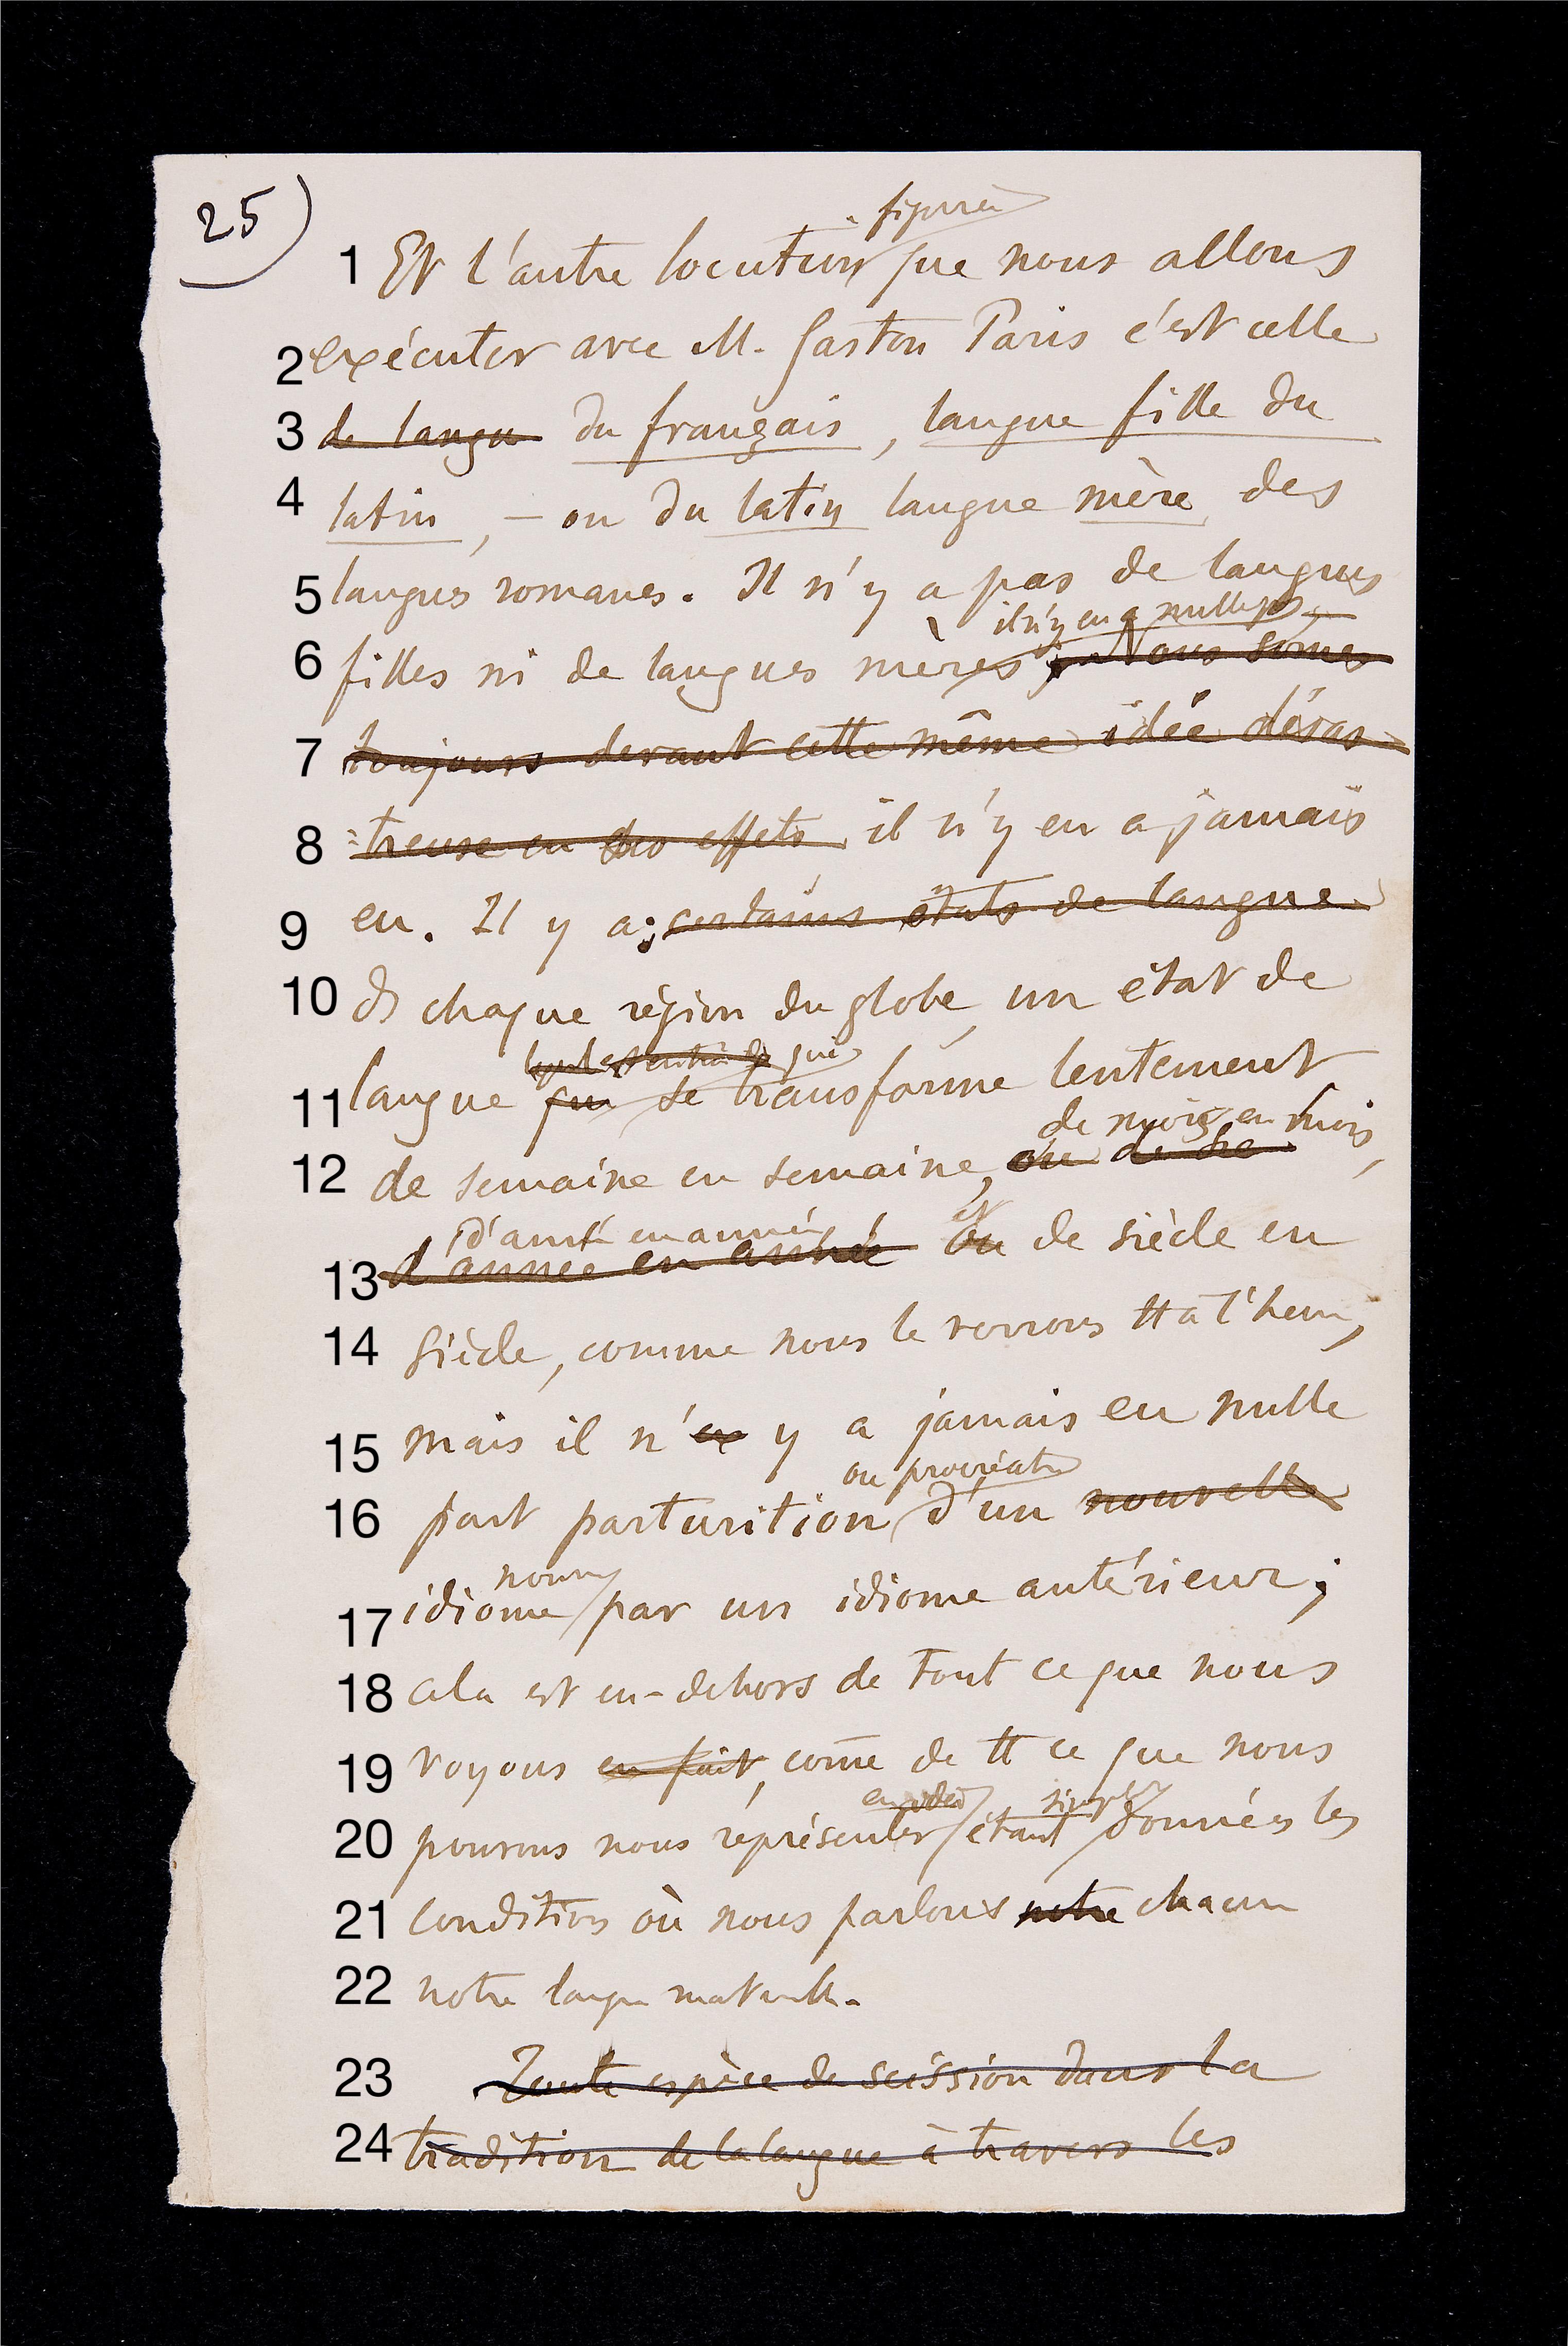 25)
figurée
1 Et l'autre locution que nous allons
2 exécuter avec M. Gaston Paris c'est celle
3 de langue du français, langue fille du
4 latin, – ou du latin langue mère des
5 langues romanes. Il n'y a pas de langues
il n'y en a nulle part,
6 filles ni de langues mères Nous somes
7 toujours devant cette même idée désas-
8 treuse en ses effets il n'y en a jamais
9 eu. Il y a certains états de langue
10 ds chaque région du globe un état de
qui
11 langue qui se transforme lentement
de mois en mois,
12 de semaine en semaine, ou de
d'année en année
et
13 d'année en année ou de siècle en
14 siècle, comme nous le verrons tt à l'heure,
15 mais il n'en y a jamais eu nulle
ou procréation
16 part parturition d'un nouvelle
nouveau
17 idiome par un idiome antérieur;
18 cela est en-dehors de tout ce que nous
19 voyons en fait, come de tt ce que nous
en idée simplement
20 pouvons nous représenter étant données les
21 conditions où nous parlons notre chacun
22 notre langue maternelle.
23 Toute espèce de scission dans la
24 tradition de la langue à travers les